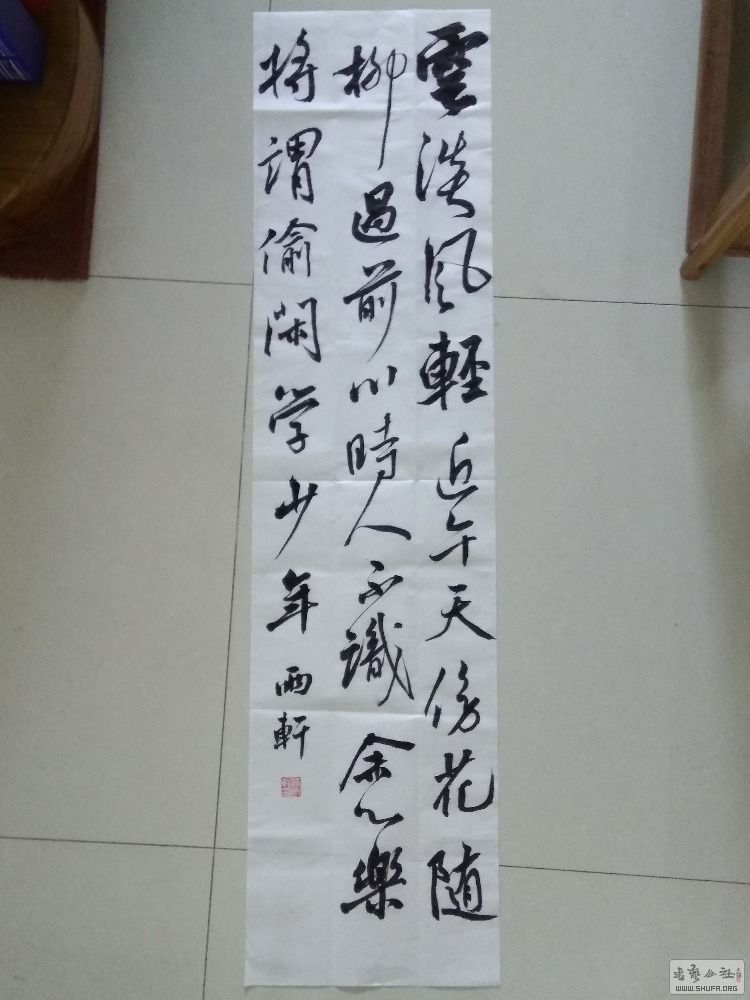 雲淡風輕近午天傍花随
柳過前川時人不識余心樂
将謂偷閑学少年 軒
书藝公社
WWW.SHUFA.ORG